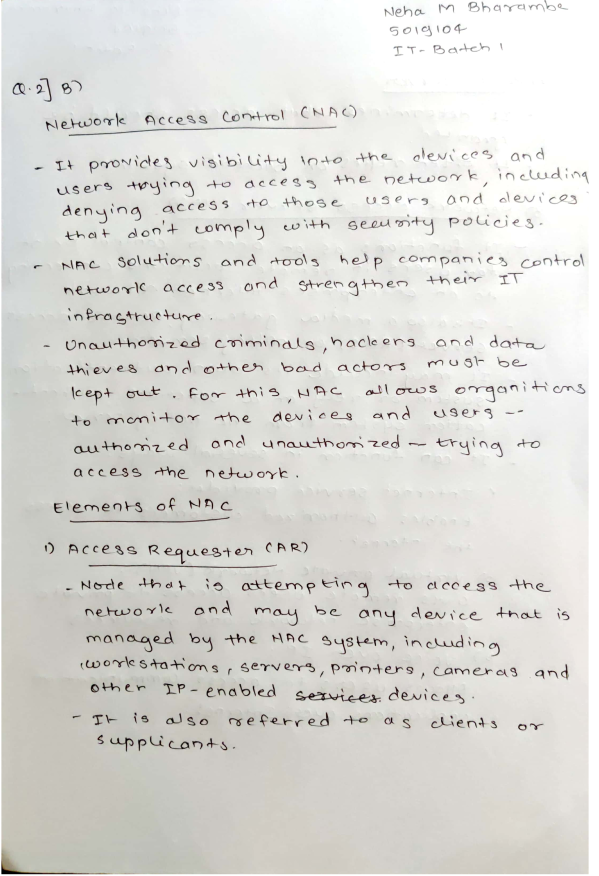 Neha M Bharambe
5019104
IT- Batch 1
Q.2] B)
Network Access Control (NAC)
- It provides visibility into the devices and
users trying to access the network, including
denying access to those users and devices
that don't comply with security policies.
- NAC solutions and tools help companies control
network access and strengthen their IT
infrastructure.
- Unauthorized criminals, hackers and data
thieves and other bad actors must be
kept out. For this, NAC allows organitions
to monitor the devices and users --
authorized and unauthorized - trying to
access the network.
Elements of NAC
1) Access Requester (AR)
- Node that is attempting to access the
network and may be any device that is
managed by the NAC system, including
workstations, servers, printers, cameras and
other IP-enabled services devices.
- It is also referred to as clients or
supplicants.